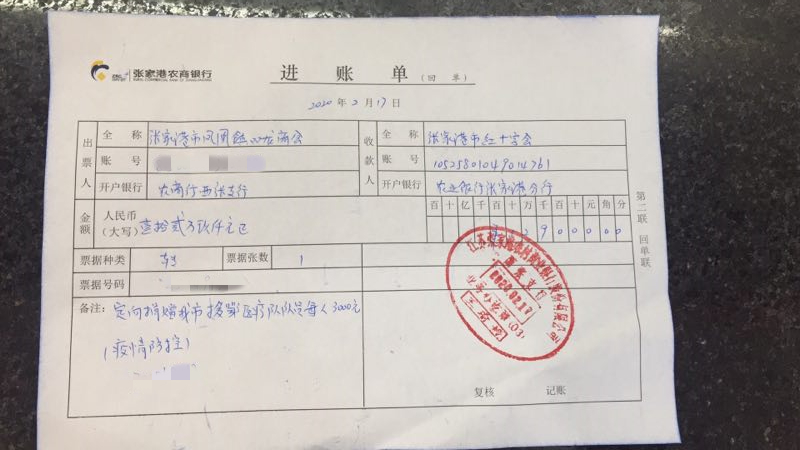 张家港农商银行 进账单（回单）
2020年2月17日
出票人 全称 张家港市凤凰 商会 收款人 全称 张家港市红十字会
账号 账号 10525801049014761
开户银行 农商行西张支行 开户银行 农业银行张家港分行
金额 人民币（大写） 壹拾贰万玖仟元正 百十亿千百十万千百十元角分
¥12900000
票据种类 转支 票据张数 1
票据号码
备注：定向捐赠我市援鄂医疗队队员每人3000元
（疫情防控）
2020.02.17
复核 记账
第二联 回单联